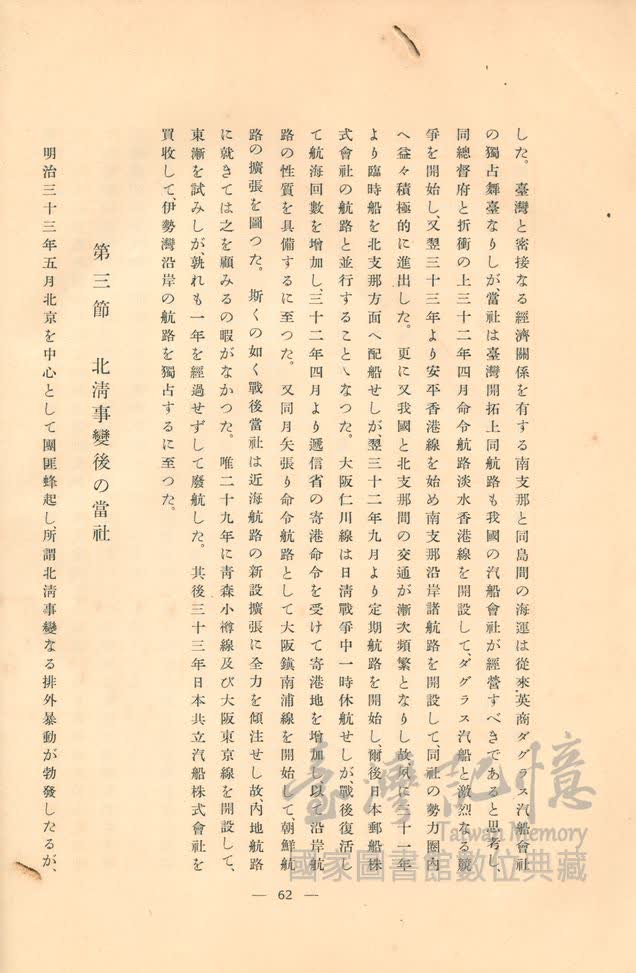 した。臺灣と密接なる經濟關係を有する南支那と同島間の海運は從來英商ダグラス汽船會社
の獨占舞臺なりしが當社は臺灣開拓上同航路も我國の汽船會社が經營すべきであると思考し、
同總督府と折衝の上三十二年四月命令航路淡水香港線を開設して、ダグラス汽船と激烈なる競
爭を開始し、又翌三十三年より安平香港線を始め南支那沿岸諸航路を開設して、同社の勢力圈內
へ益々積極的に進出した。更に又我國と北支那間の交通が漸次頻繁となりし故、夙に三十一年
より臨時船を北支那方面へ配船せしが、翌三十二年九月より定期航路を開始し、爾後日本郵船株
式會社の航路と並行することゝなつた。大阪仁川線は日淸戰爭中一時休航せしが、戰後復活し
て航海回數を增加し、三十二年四月より遞信省の寄港命令を受けて寄港地を增加し以て沿岸航
路の性質を具備するに至つた。又同月矢張り命令航路として大阪鎭南浦線を開始して朝鮮航
路の擴張を圖つた。斯くの如く戰後當社は近海航路の新設擴張に全力を傾注せし故、內地航路
に就きては之を顧みるの暇がなかつた。唯二十九年に靑森小樽線及び大阪東京線を開設して、
東漸を試みしが、孰れも一年を經過せずして廢航した。其後三十三年日本共立汽船株式會社を
買收して、伊勢灣沿岸の航路を獨占するに至つた。
第三節 北淸事變後の當社
明治三十三年五月北京を中心として團匪蜂起し、所謂北淸事變なる排外暴動が勃發したるが、
— 62 —
臺灣記憶
Taiwan Memory
國家圖書館數位典藏